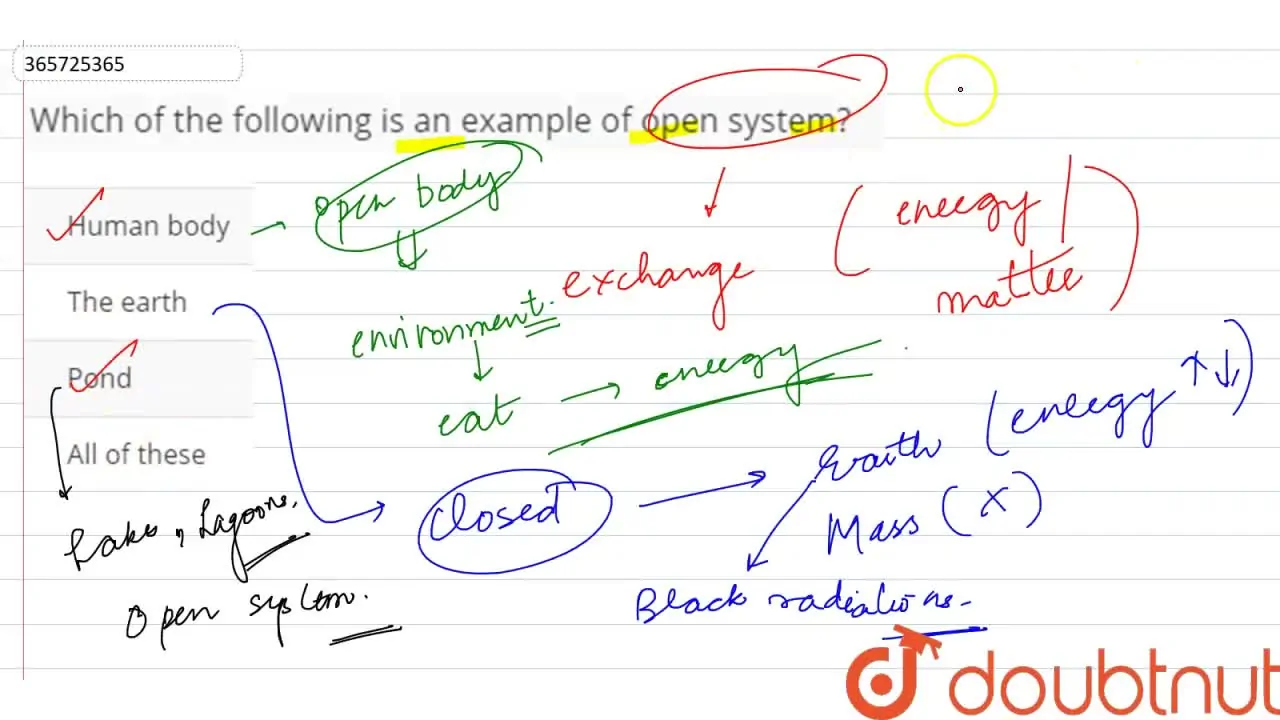 365725365
Which of the following is an example of open system?
Human body
open body
exchange
(eneegy/
mattee)
The earth
environment.
eat → eneegy
Pond
All of these
Lake, Lagoons.
Open system.
closed
Earth (eneegy ↑↓)
Mass (x)
Black radiations.
doubtnut